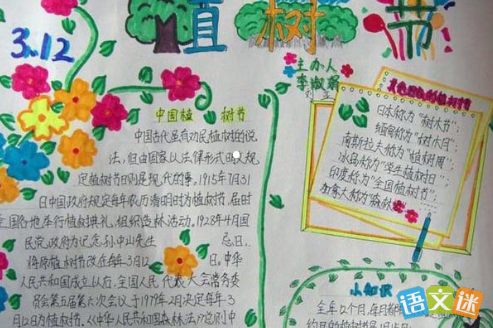 3.12
植树节
主办人
中国植树节
中国古代虽有劝民植树的说
法,但由国家以法律形式
定植树节则是现代的事。1915年7月31
日中国政府规定每年农历清明时为植树节。届时
全国各地举行植树典礼,组织造林活动。1928年4月国
民党政府为记念孙中山先生 忌日,
将原植树节改在每年3月12日。中华
人民共和国成立以后,全国人民代表大会常务委
员会第五届第六次会议于1979年2月决定每年3
月12日为植树节。《中华人民共和国森林法》规则中
植树节
日本称为“树木节”;
缅甸称为“树木月”;
南斯拉夫称为“植树周”;
冰岛称为“学生植树日”;
印度称为“全国植树节”;
加拿大称为“森林
小知识
全年12个月,每月都
语文迷